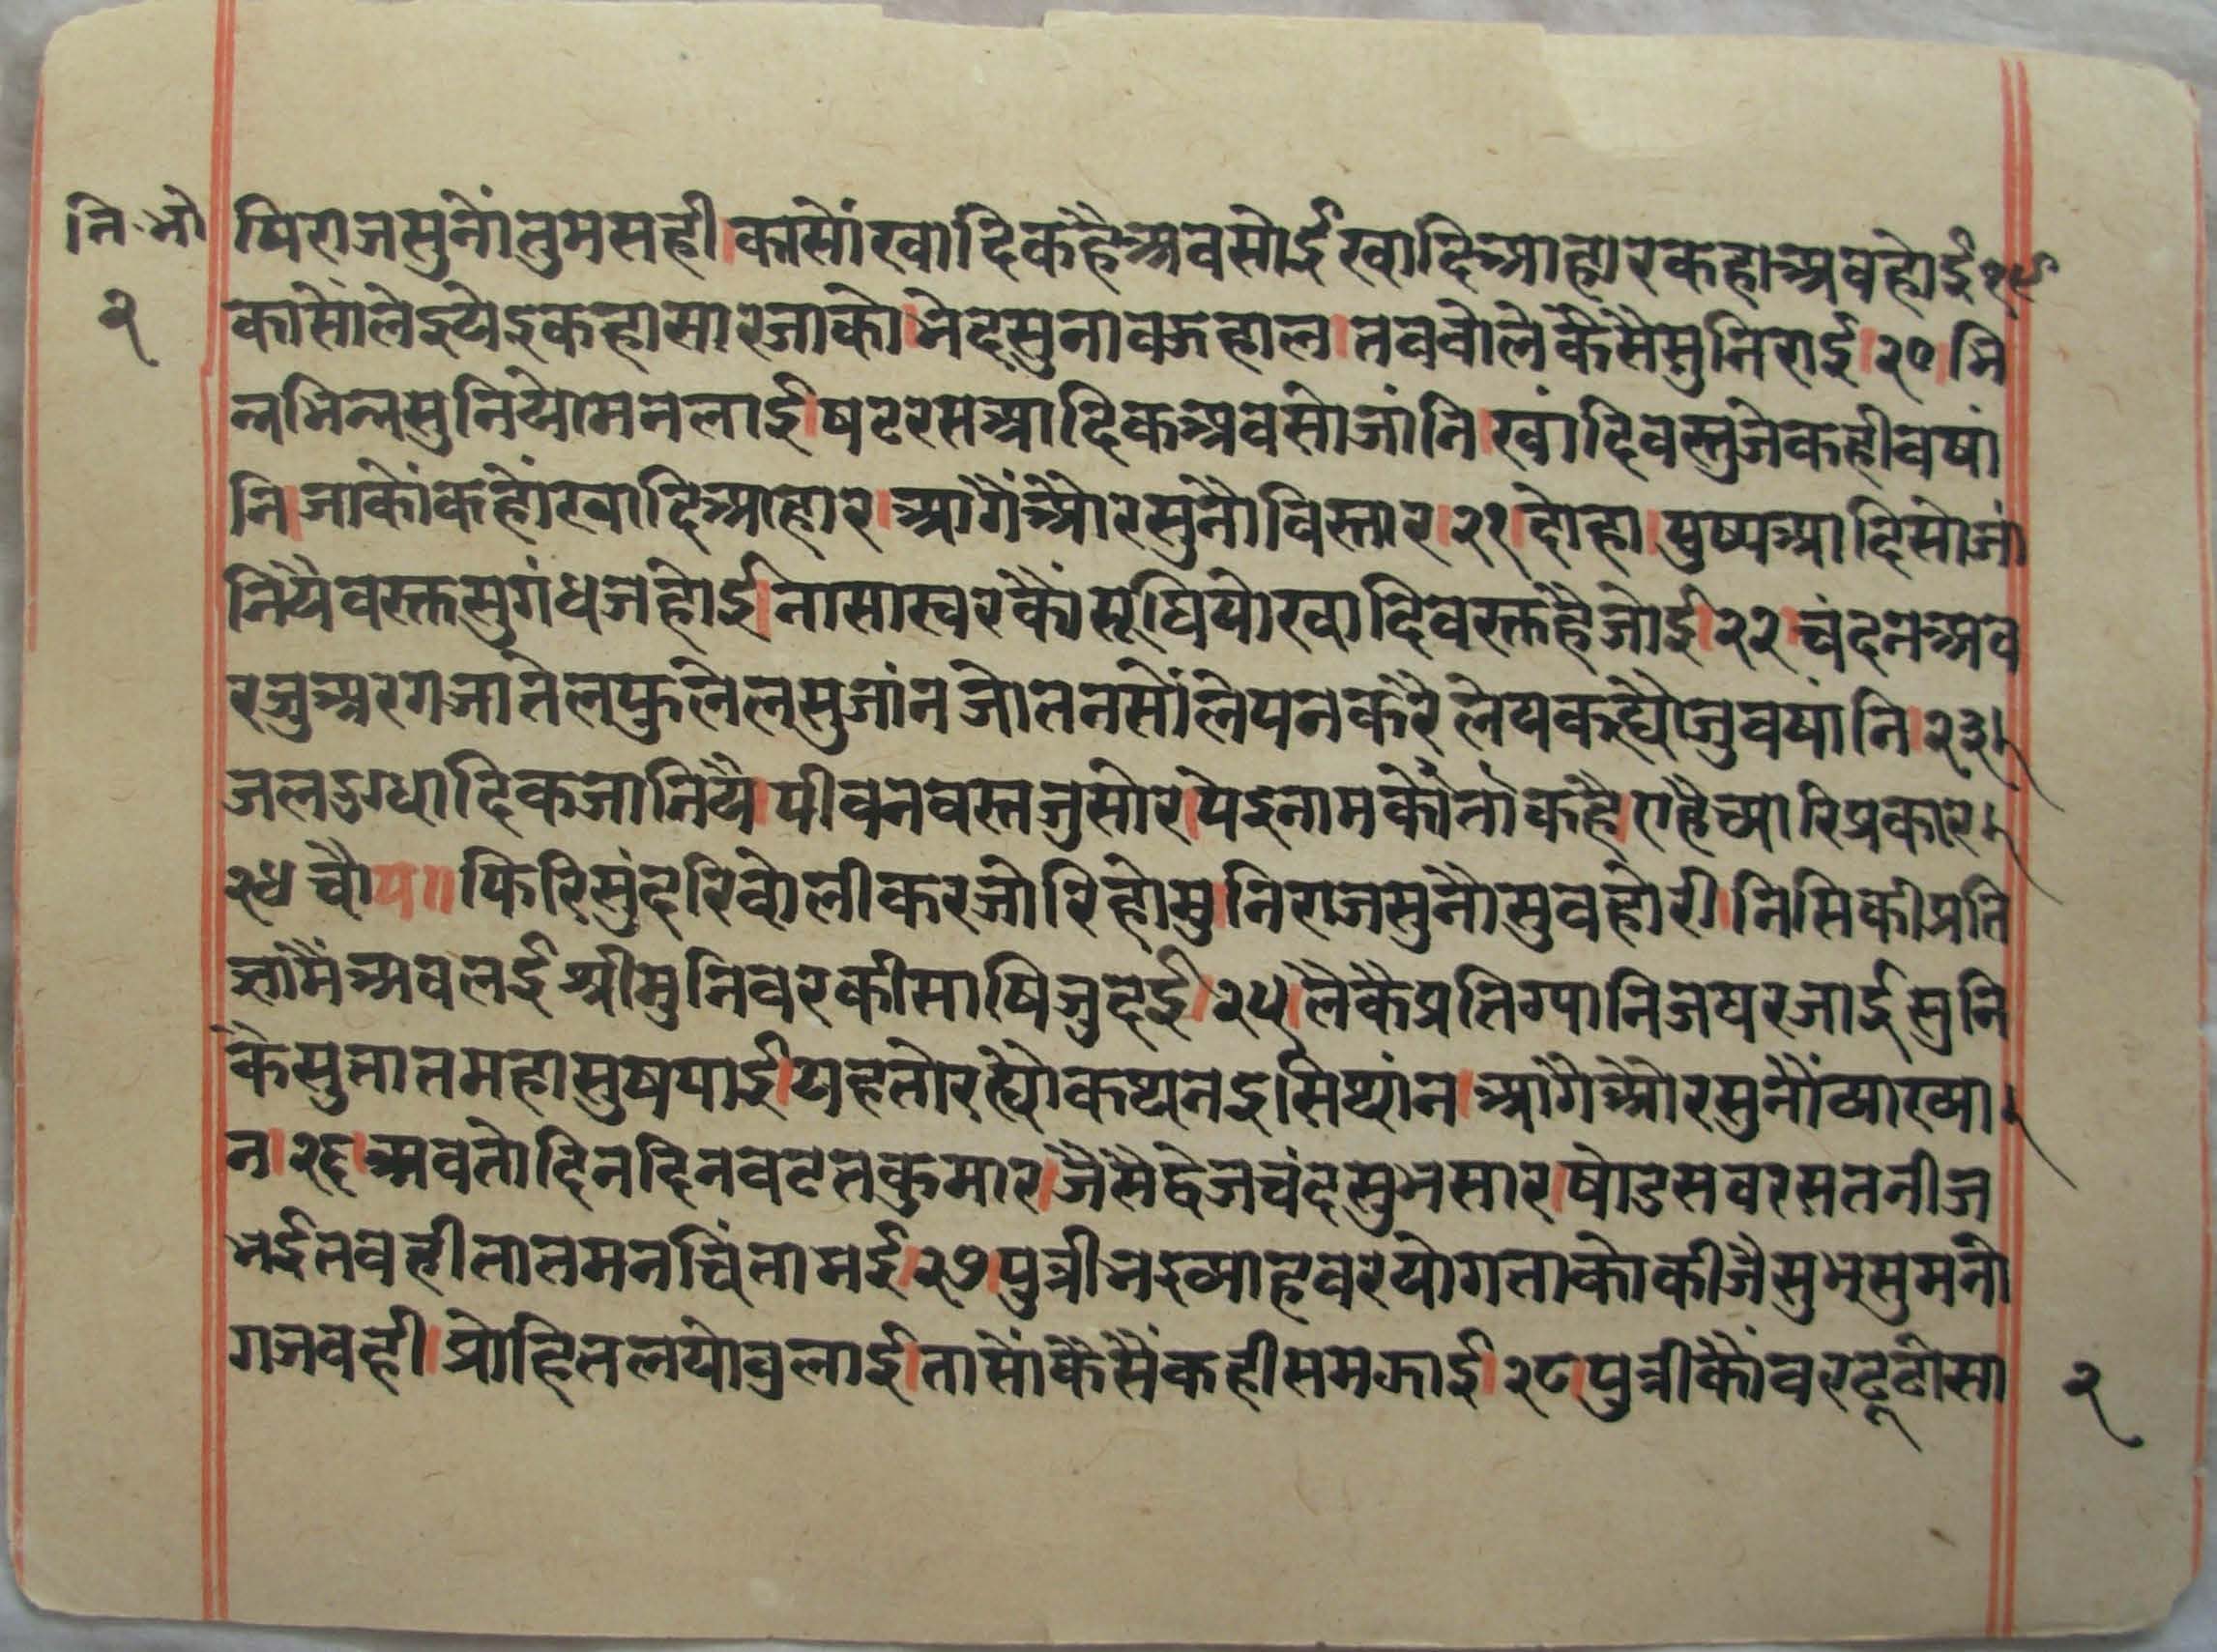 नि.भो
२
षिराजसुनोंतुमसही।कासोंखादिकहैअवसोईस्वादिआहारकहाअवहोई१९
कासोंलेइयेइकहासारजाकोभेदसुनावऊहाल।तववोलेकैसैमुनिराई।२०।भि
न्नभिन्नसुनियोमनलाई।षटरसआदिकअवसोजांनि।स्वांदिवस्तुजेकहीवषां
नि।जाकोंकहोंस्वादिआहार।आगैंऔरसुनौविस्तार।२१।दोहा।पुष्पआदिसोजां
नियैवस्तसुगंधजहोई।नासास्वरकौंसूघियोस्वादिवस्तहैजोई।२२।चंदनअव
रजुअरगजातेलफुलेलसुजांनजोतनसोंलेपनकरैलेपकह्यैजुवषांनि।२३।
जलदुग्धादिकजानियै।पीवनवस्तजुसोर।पेइनामकौंतांकहै।एहैच्यारिप्रकार।
२४चौप॥फिरिसुंदरिवोलीकरजोरिहोमुनिराजसुनौसुवहोरी।निसिकीप्रति
ज्ञांमैंअवलईश्रीमुनिवरकीसाषिजुदई।२५।लैकैप्रतिग्यानिजघरजाईसुनि
कैसुतातमहासुषपाई।यहतोरह्यौकथनइसिथांन।आगैऔरसुनौंव्याख्या
न।२६।अवतोदिनदिनवटतकुमार।जैसैद्वेजचंदसुभसार।षोडसवरसतनीज
भईतवहीतातमनचिंताभई।२७।पुत्रीभइव्याहवरयोगताकोकीजैसुभसुमनो
गजवही।प्रोहितलयोवुलाई।तासौंकैसैंकहीसमझाई।२८।पुत्रीकौंवरढूढोसा
२